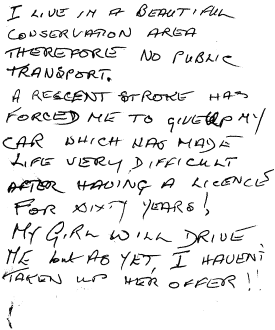 I LIVE IN A BEAUTIFUL
CONSERVATION AREA
THEREFORE NO PUBLIC
TRANSPORT.
A RESCENT STROKE HAS
FORCED ME TO GIVE UP MY
CAR WHICH HAS MADE
LIFE VERY DIFFICULT
AFTER HAVING A LICENCE
FOR SIXTY YEARS!
MY GIRL WILL DRIVE
ME but AS YET, I HAVENT
TAKEN UP HER OFFER!!